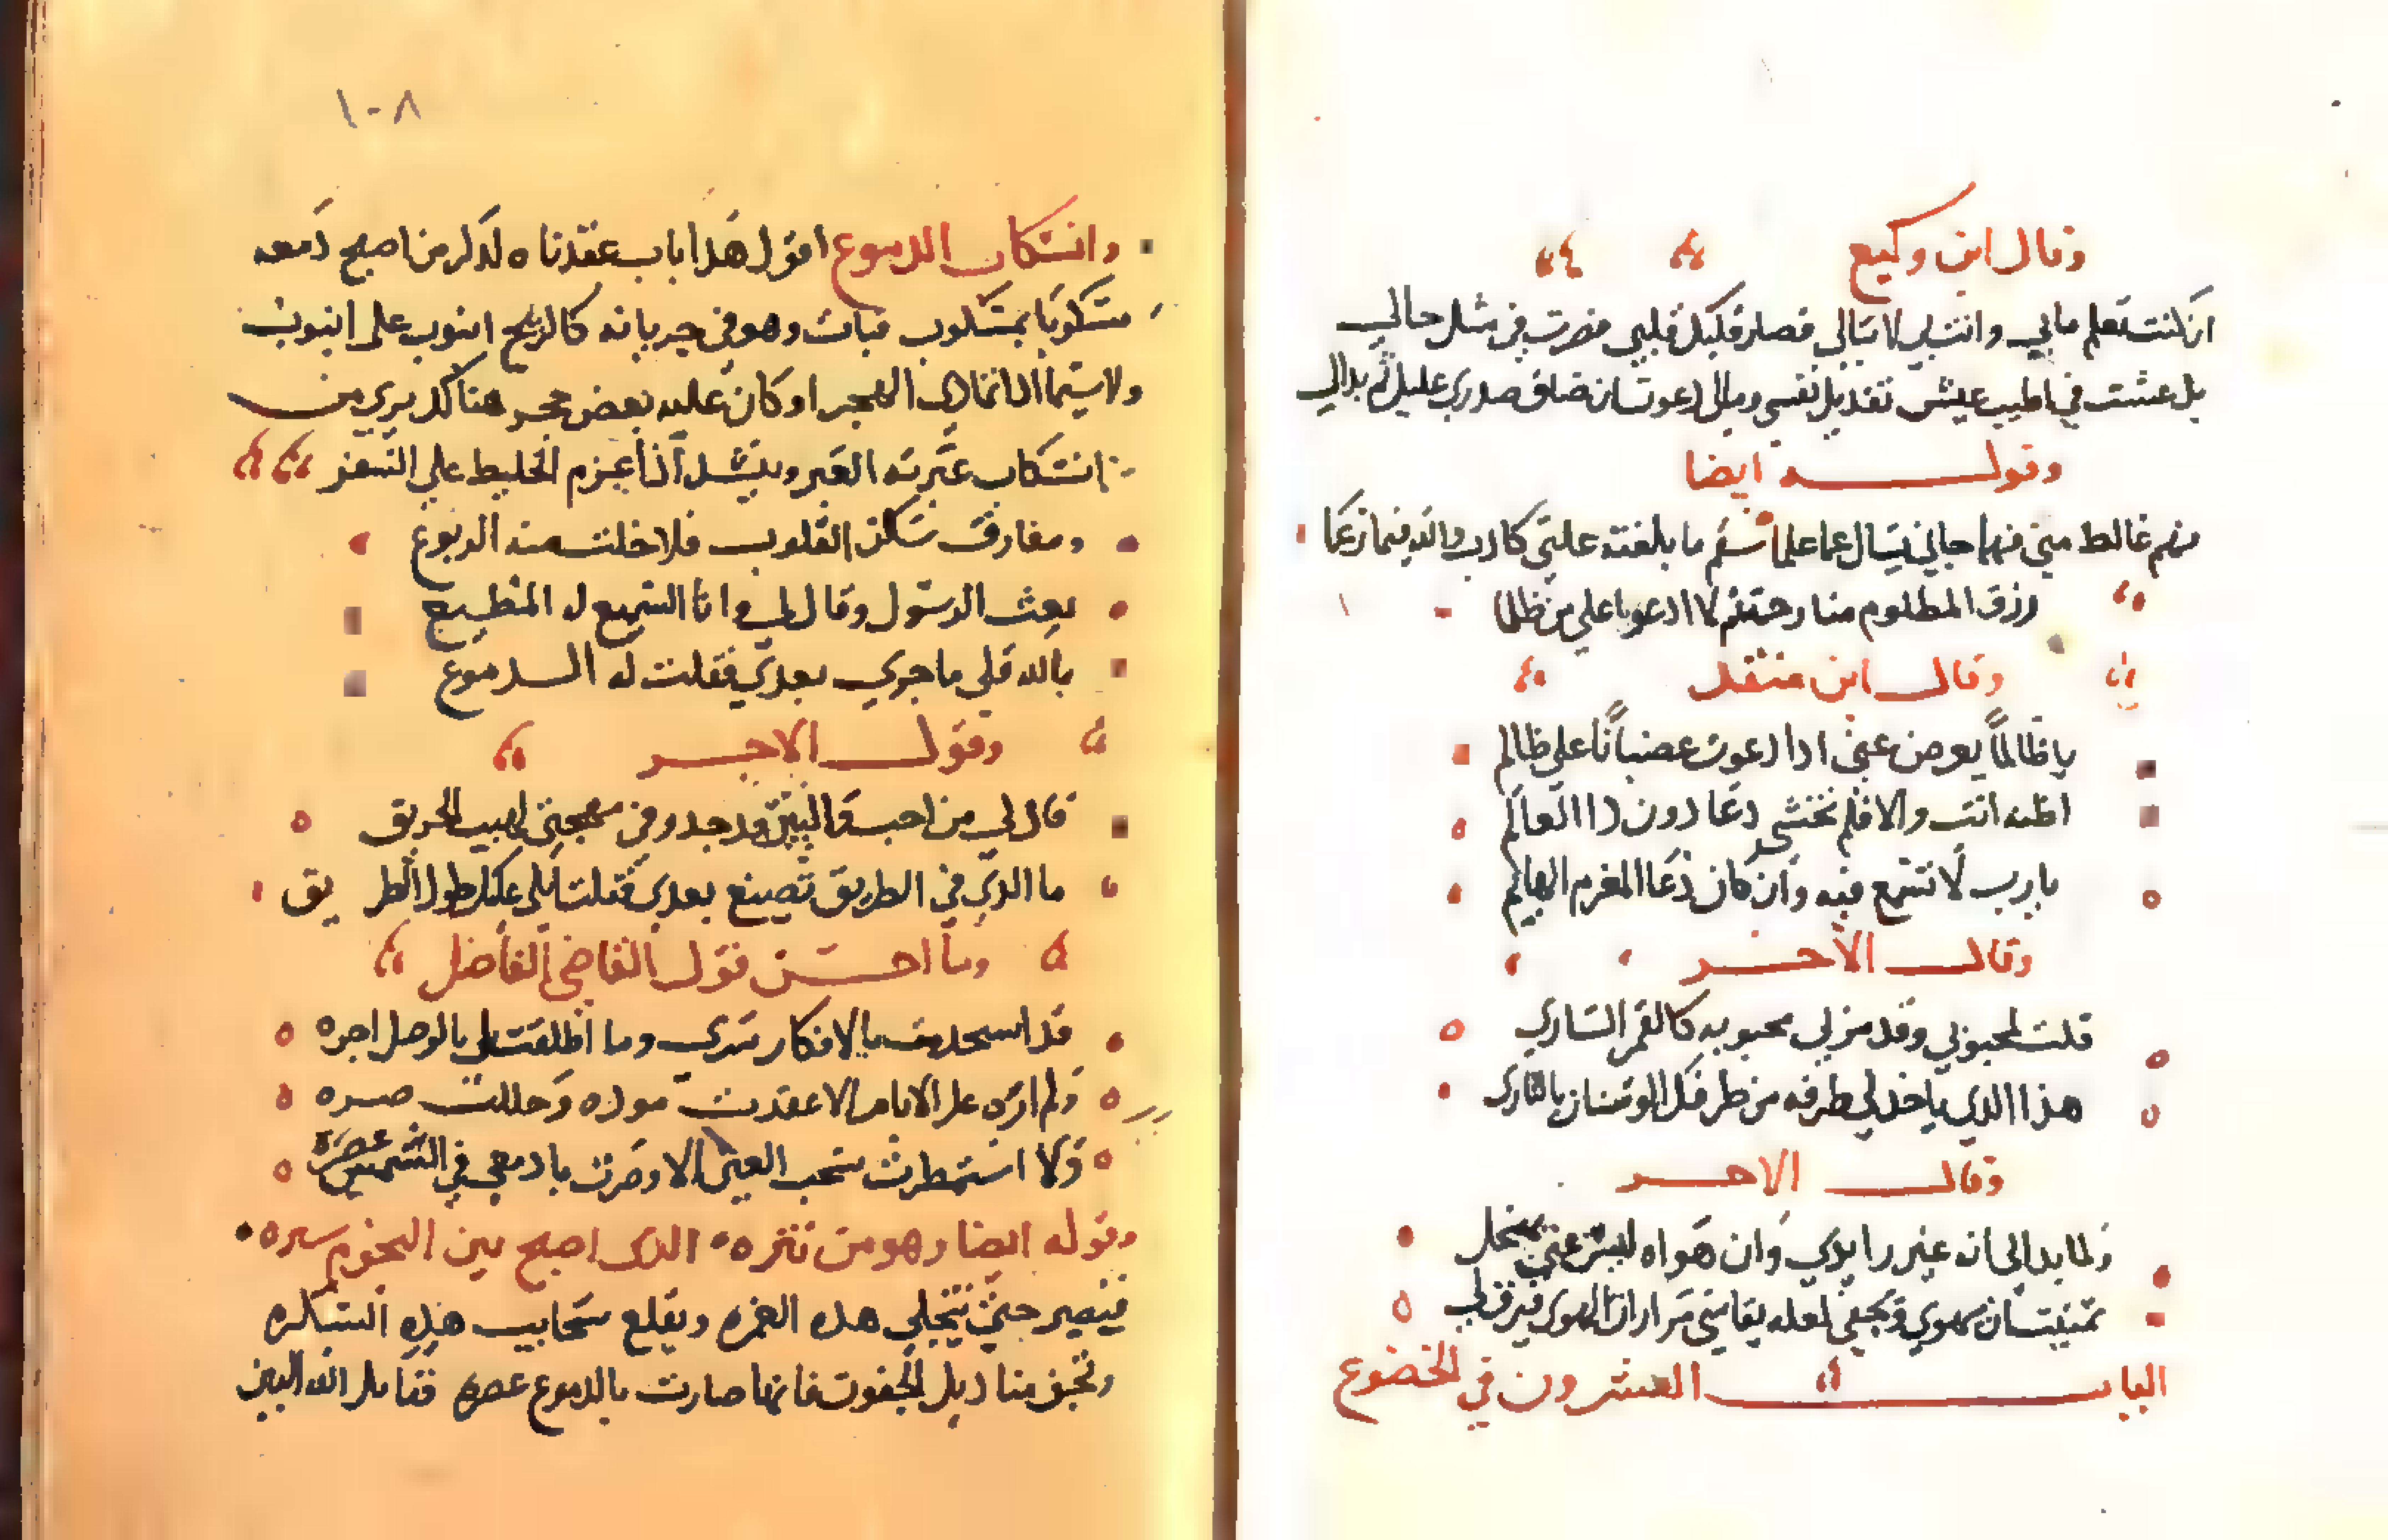 وقال ابن وكيع
ان كنت تعلم مابي وانت بي لا تبالي فصار قلبك قلبي فصرت في مثل حالي
بل عشت في اطيب عيش تفديك نفسي ومالي دعوت ان ضاق صدري عليك ثم بدالي
وقوله ايضا
غالط مني جاني يسال عما علما سقم ما بلغته علتي كاذب والله فيما زعما
رزق المظلوم منا رحمة ثم لا ادعو ما على من ظلما
وقال ابن منقد
يا ظالما يعرض عني اذا دعوت غضبانا على ظالم
اظنه انت والا فلم تخشى دعا دون ذا العالم
يارب لا تسمع فيه وان كان دعا المغرم الهايم
وقال الاخر
قلت لمحبوبي وقد مر بي محبوبه كالقمر الساري
هذا الذي ياخد لي طرفه من طرفك الوسنان بالثاري
وقال الاخر
ولما بدالي انه غير رايدي وان هواه ليس عني بمنجل
تمنيت ان يهوي ويجفي لعله يقاسي مرارات الهوى فيرق لي
الباب العشرون في الخضوع
١٠٨
وانسكاب الدموع اقول هذا باب عقدناه لذكر من اصبح دمعه
مسكوبا بمسكوب فبات وهو في جريانه كالرمح انبوب على انبوب
ولا سيما اذا الهجر او كان عليه بعض حجر هناك يري من
انسكاب عبرته العبر وينشد اذا عزم الخليط على السفر
ومفارق سكن القلوب فلا خلت منه الربوع
بعث الرسول وقال لي وانا السميع له المطيع
بالله قلي ما جري بعدي فقلت له الدموع
وقول الاخر
قال لي من احب والبين قد جد وفي مهجتي لهيب الحريق
ما الذي في الطريق تصنع بعدي فقلت ابكي عليك طول الطريق
وما احسن قول القاضي الفاضل
قد استخدمت بالافكار سري وما اطلقت لي بالوصل اجره
ولم اره على الايام الا عقدت موده وحللت صبره
ولا استمطرت سحب العين الا وصرت بادمعي في الشمس عصره
وقوله ايضا وهو من نثره الذي اصبح بين النجوم
فيصير حتى تنجلي هذه الغمره ويقلع سحابيب هذه السكره
وتجف منا ذيل الجفون فانها صارت بالدموع عصره فقاتل الله البين